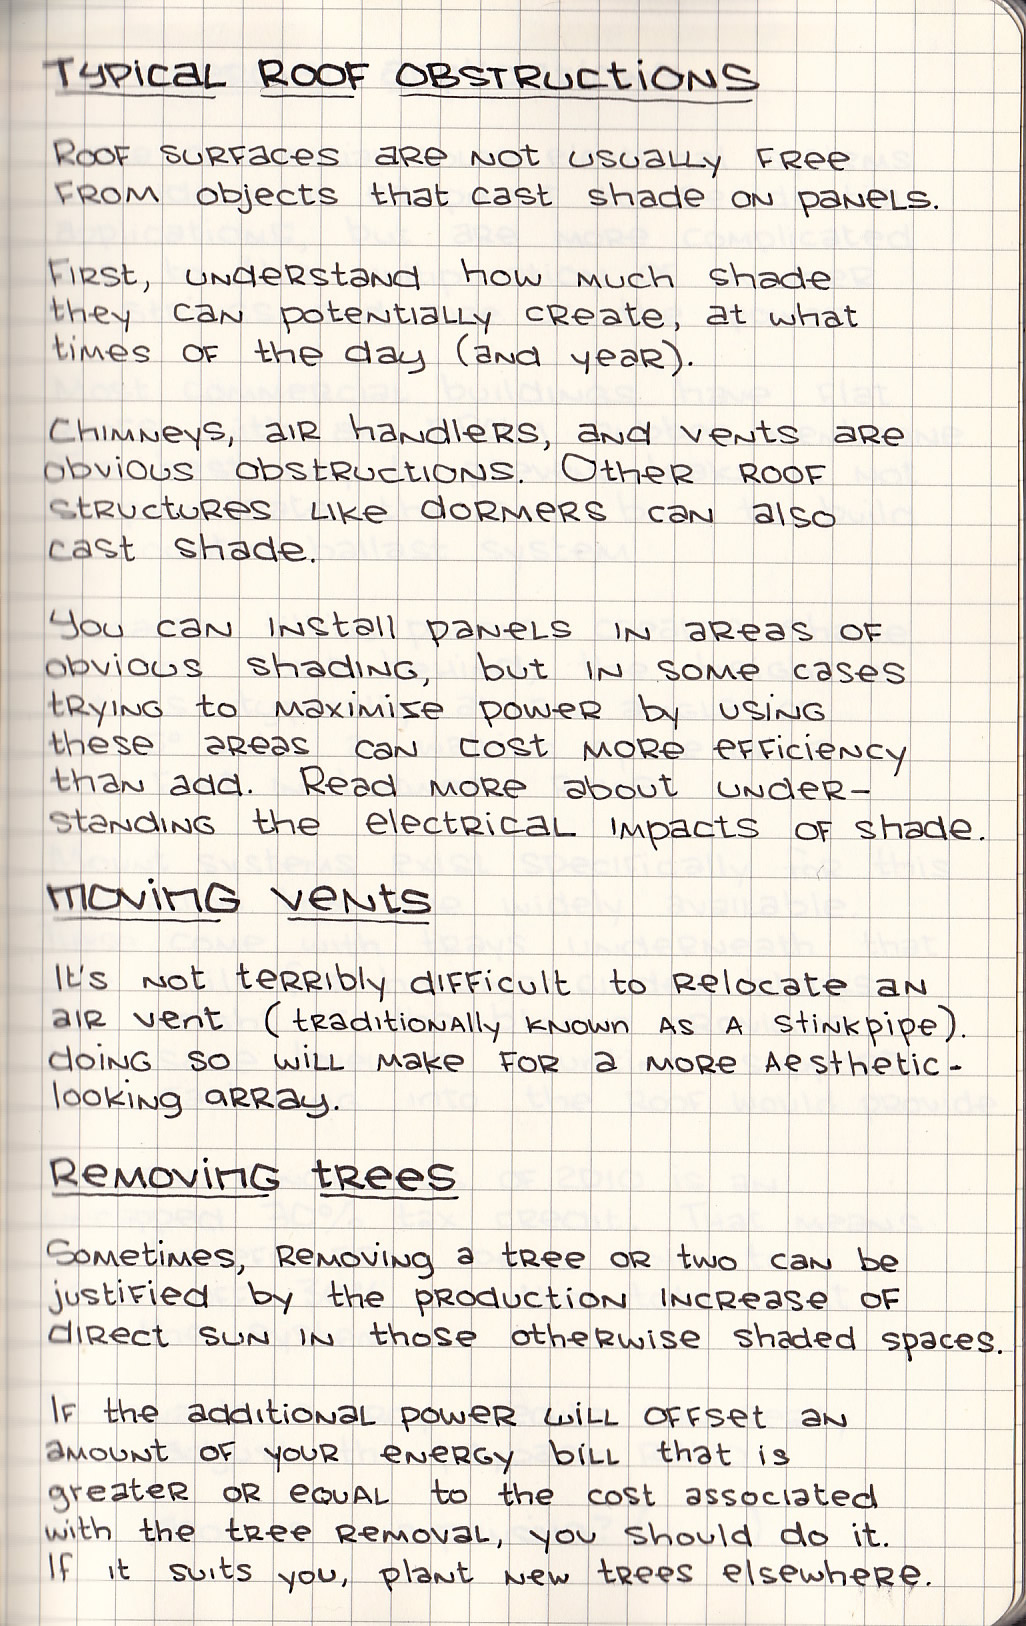 Typical Roof Obstructions
Roof surfaces are not usually free
from objects that cast shade on panels.
First, understand how much shade
they can potentially create, at what
times of the day (and year).
Chimneys, air handlers, and vents are
obvious obstructions. Other roof
structures like dormers can also
cast shade.
You can install panels in areas of
obvious shading, but in some cases
trying to maximise power by using
these areas can cost more efficiency
than add. Read more about under-
standing the electrical impacts of shade.
Moving vents
It's not terribly difficult to relocate an
air vent (traditionally known as a stinkpipe).
doing so will make for a more aesthetic-
looking array.
Removing trees
Sometimes, removing a tree or two can be
justified by the production increase of
direct sun in those otherwise shaded spaces.
If the additional power will offset an
amount of your energy bill that is
greater or equal to the cost associated
with the tree removal, you should do it.
If it suits you, plant new trees elsewhere.